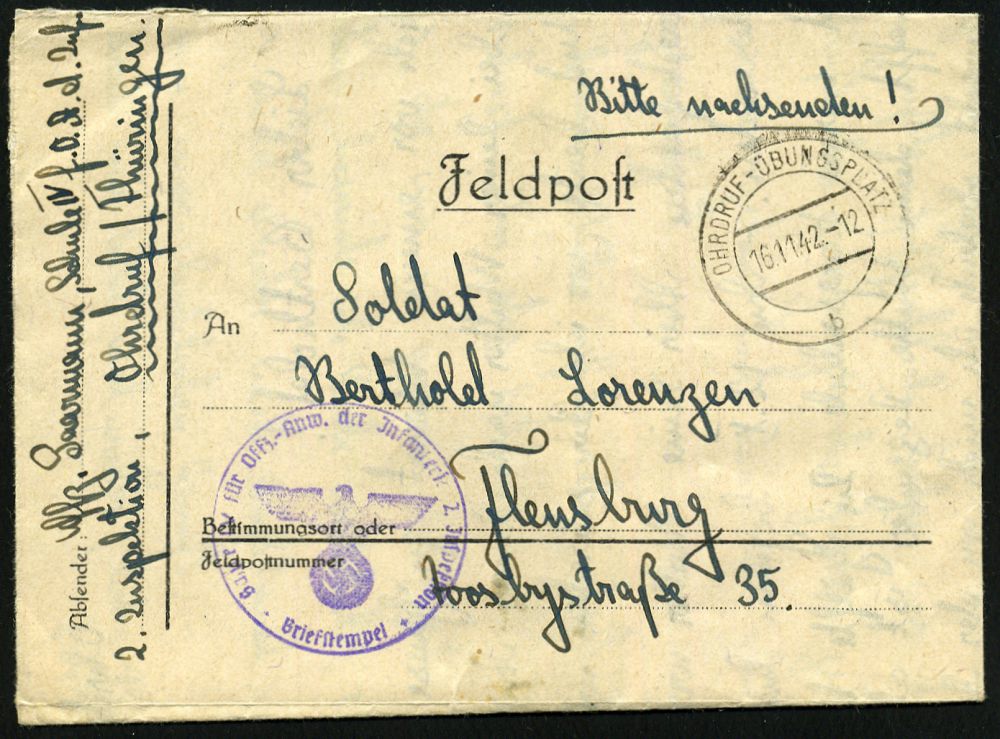 Bitte nachsenden!
Feldpost
OHRDRUF-ÜBUNGSPLATZ
16.11.42.-12
b
An Soldat
Berthold Lorenzen
Flensburg
Bestimmungsort oder
Feldpostnummer
Toosbystraße 35.
für Offz.-Anw. der Infanterie 2. Inspektion
Briefstempel
Absender: Uffz. Schule IV f. O. A. d. Inf.
2. Inspektion, Ohrdruf / Thüringen.